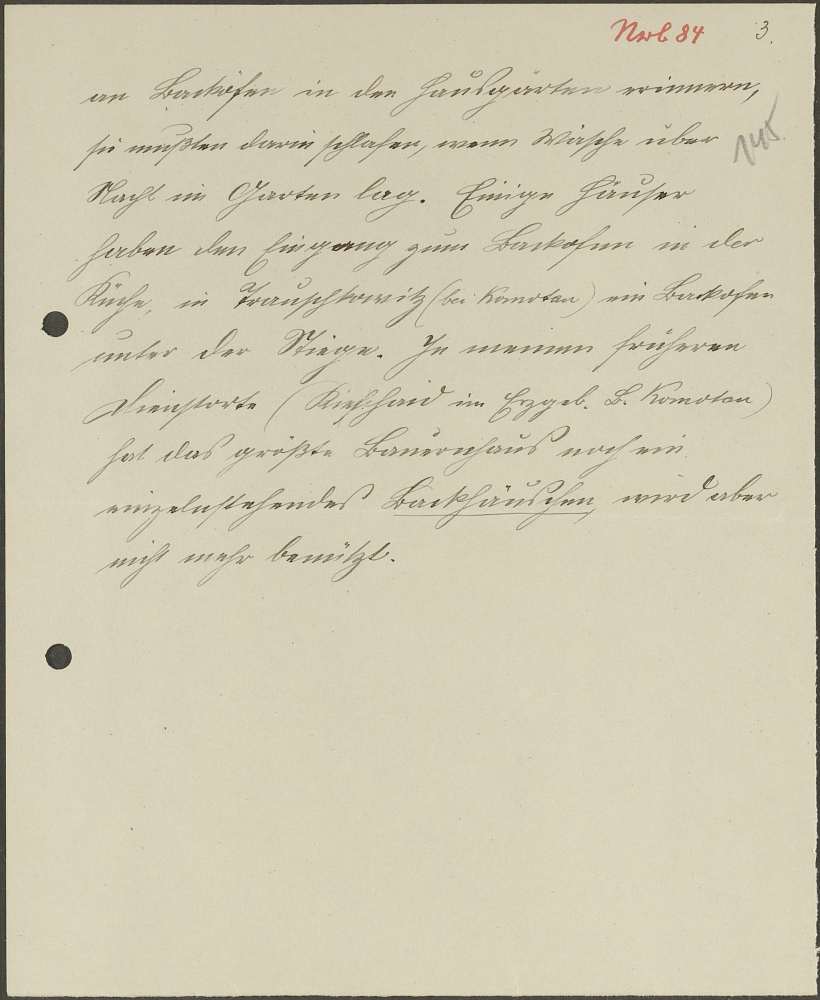 Nrb 84
3.
an Backöfen in den Hausgärten erinnern,
145.
sie mußten darin schlafen, wenn Wäsche über
Nacht im Garten lag. Einige Häuser
haben den Eingang zum Backofen in der
Küche, in Trauschkowitz (bei Komotau) ein Backofen
unter der Stiege. In meinem früheren
Dienstorte (Kienhaid im Erzgeb. B. Komotau)
hat das größte Bauernhaus noch ein
einzelnstehendes Backhäuschen, wird aber
nicht mehr benützt.